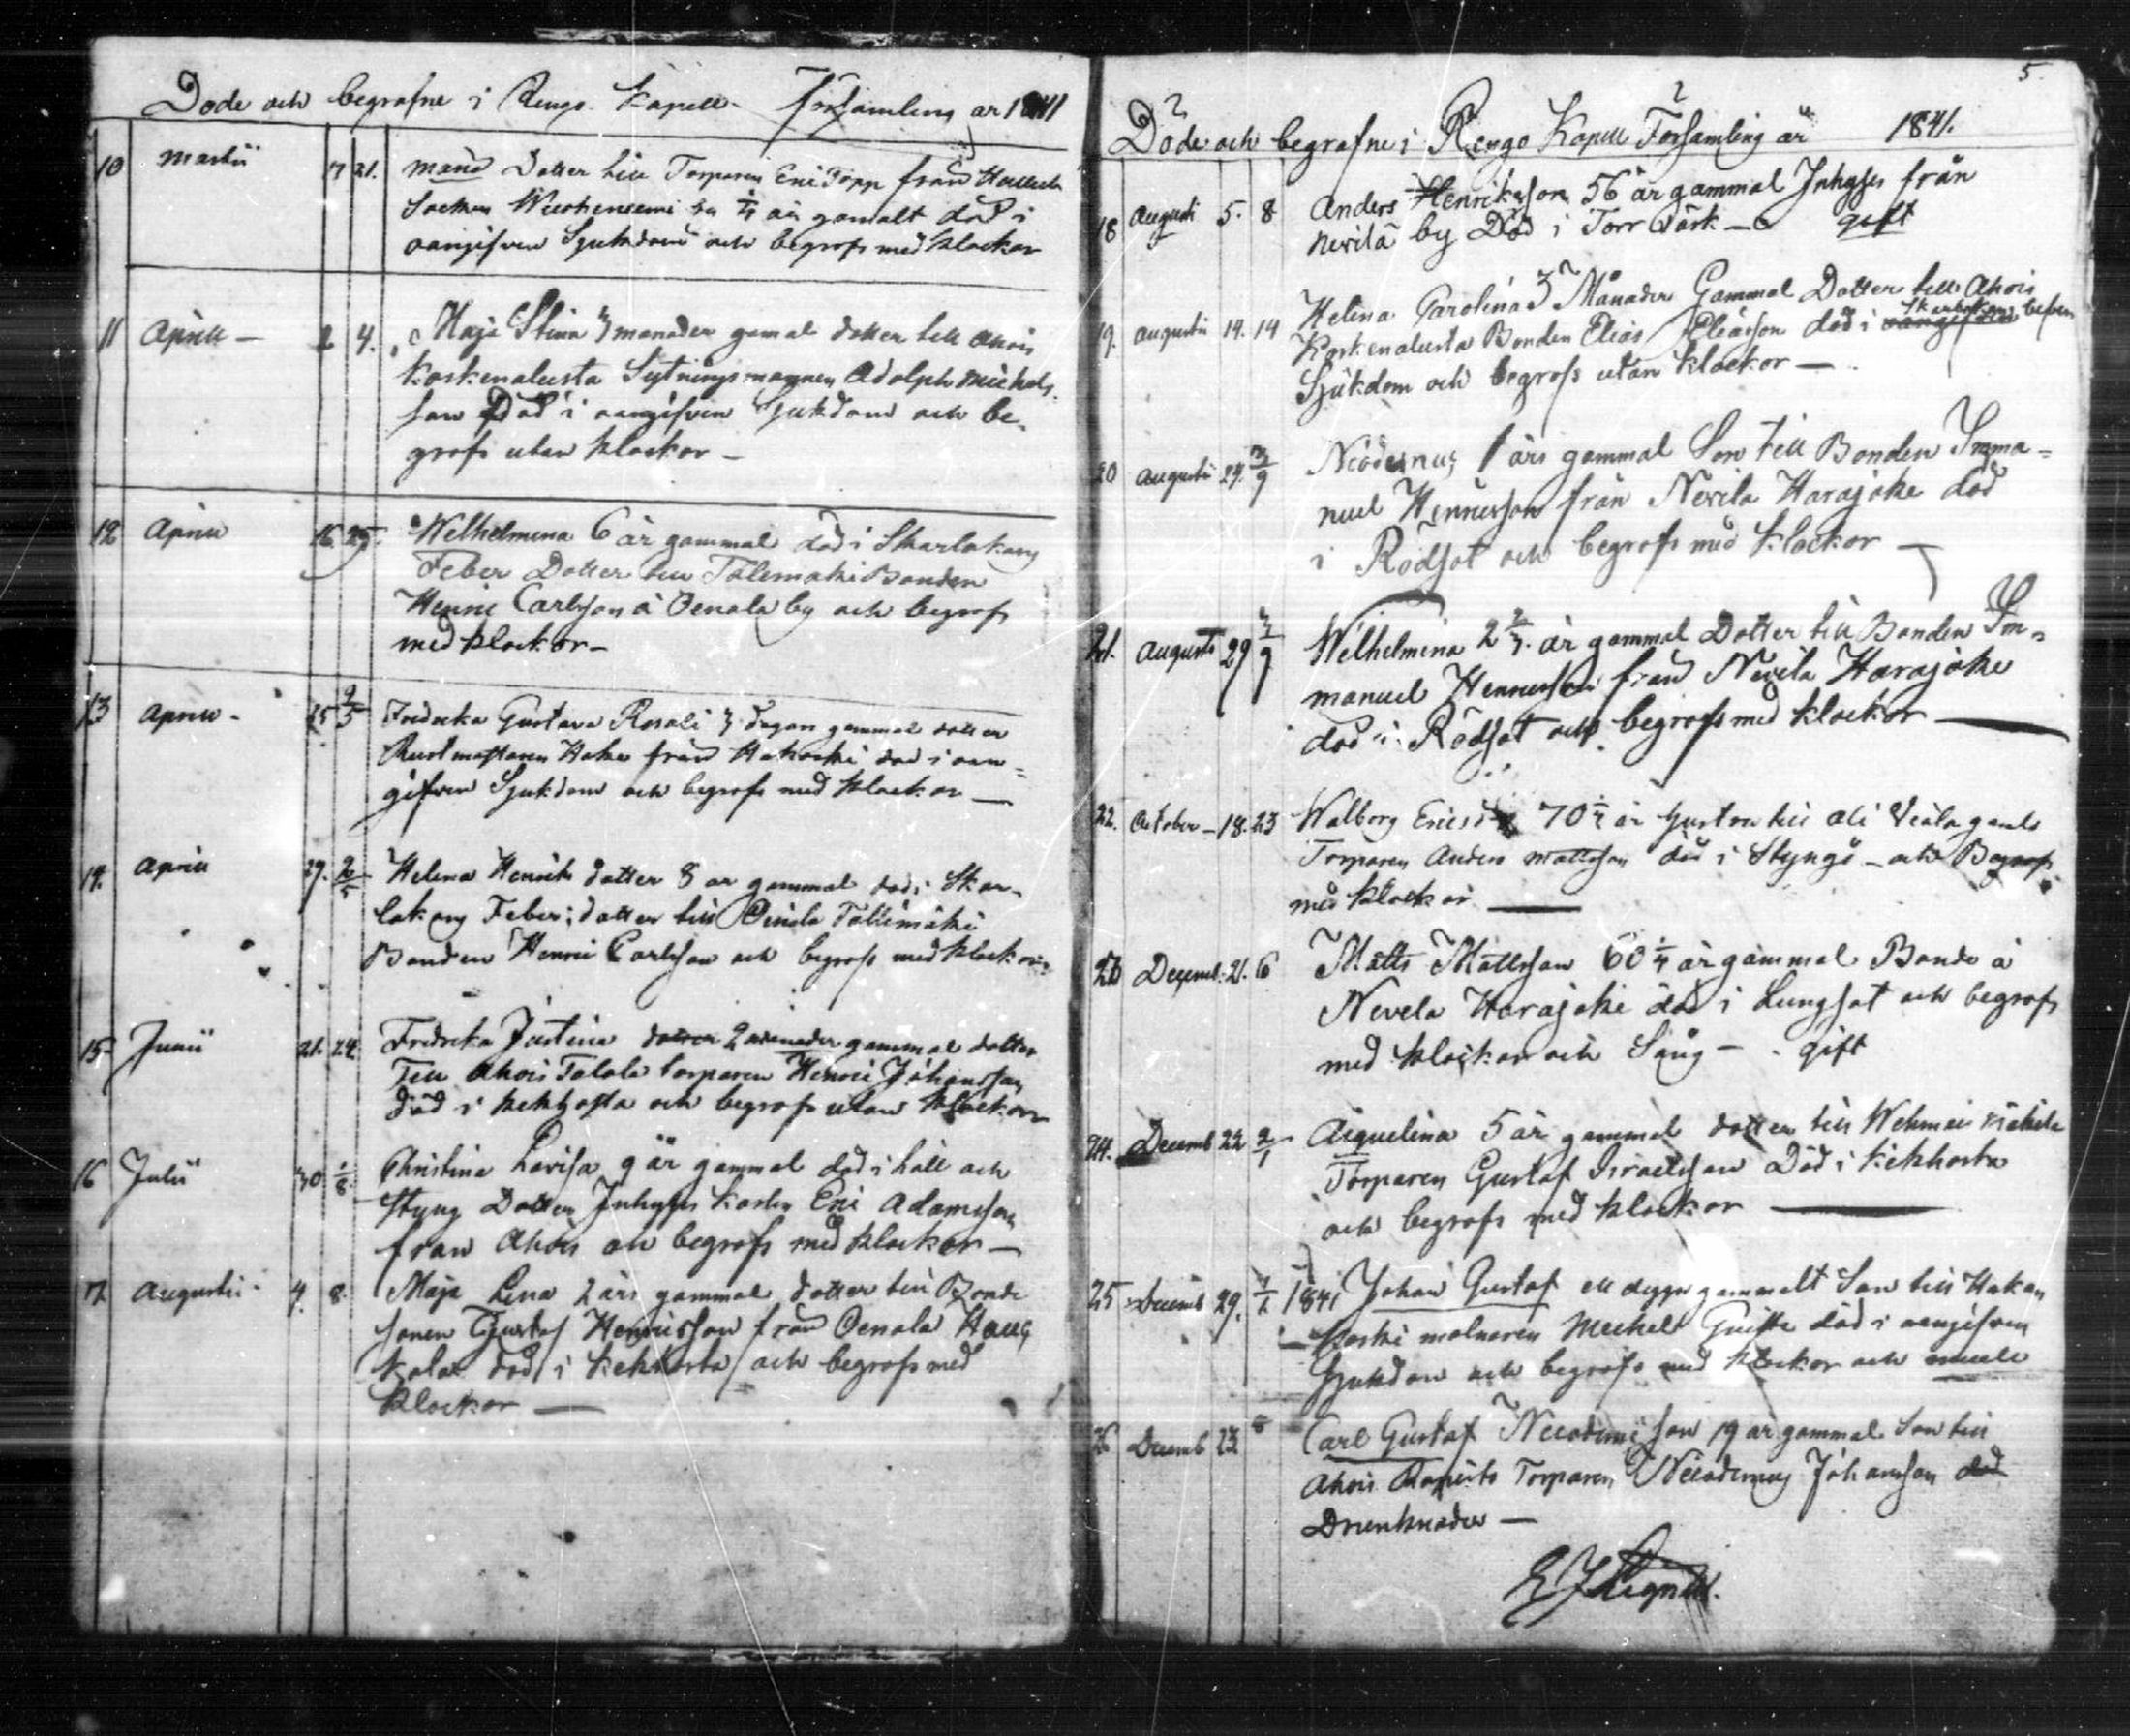 Döde och begrafne i Rengo Kapell Församling år 1841
10 Martii 7 21. Dotter till Torparen Eric Töpp från
Socken år gamalt död i
oangifven Sjukdom och begrofs med klockor
11 Aprill – 2 4. Maja Stina 3 månader gamal dotter till Ahois
Koskenalusta Sytningsmannen Adolph Michels
son Död i oangifven Sjukdom och be-
grofs utan klockor –
12 Aprill 16 25. Wilhelmina 6 år gammal död i Skarlakans
Feber Dotter till Tälimäki Bonden
Henric Carlsson å Oenala by och begrofs
med klockor –
13 Aprill – 25 2/5 Fredrika Gustava Rosali 3 dagar gammal dotter
från död i oan=
gifven Sjukdom och begrofs med klockor —
14. Aprill 27. 2/5 Helena Henriks dotter 8 år gammal död i Skar-
lakans Feber; dotter till Oinala Tällimäki
Bonden Henric Carlsson och begrofs med klockor
15 Junii 21. 24 Fredrika Justina 2 månader gammal dotter
Till Ahois Talola torparen Henric Johansson
död i kikhosta och begrofs utan klockor
16 Julii 30 1/8 Christina Lovisa 9 år gammal död i håll och
styng Dotter Inhyses Karlen Eric Adamsson
från Ahois och begrofs med klockor —
17 Augustii 4. 8. Maja Lena 2 års gammal dotter till Bonde
sonen Gustaf Henricsson från Oenala Haug
kala död i kikhosta och begrofs med
klockor —
5.
Döde och begrafne i Rengo Kapell Församling år 1841.
18 Augusti 5. 8 Anders Henriksson 56 år gammal Inhyses från
Nevilä by Död i Torr Värk — gift
19. Augustii 14. 14 Helena Carolina 3 Månader Gammal Dotter till Ahois
Koskenalusta Bonden Elias Eliasson död i oangifven
Sjukdom och begrofs utan klockor —
20 Augustii 29. 3/9 Nicodemus 1 års gammal Son till Bonden Imma=
nuel Henricsson från Nevila Harajoke död
i Rödsot och begrofs med klockor —
21. Augusti 29 3/9 Wilhelmina 2 år gammal Dotter till Bonden Im=
manuel Henricsson från Nevila Harajoke
död i Rödsot och begrofs med klockor —
22. October – 18. 23 Walborg Ericsd 70 år hustru till
Torparen Anders Mattsson död i Styng – och Begrofs
med klockor —
23 Decemb. 21. 6 Matts Mattsson 60 1/4 år gammal Bonde å
Nevela Harajoki död i Lungsot och begrofs
med klockor och Sång – gift
24. Decemb 22 2/1 Aiquelina 5 år gammal dotter till Wehmais
Torparen Gustaf Israelsson Död i kikhosta
och begrofs med klockor —
25 Decemb 29. 1/2 1841 Johan Gustaf ett dygn gammalt Son till Hakan
koski molnaren Michel död i oangifven
Sjukdom och begrofs med klockor och
26 Decemb 23 8 Carl Gustaf Nicodemi son 19 år gammal Son till
Ahois Torparen Nicodemus Johansson död
Drunknader —